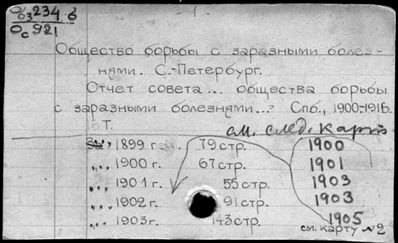 О 63 234 б
Ос 921
Общество борьбы с заразными болез-
нями. С.-Петербург.
Отчет совета... общества борьбы
с заразными болезнями...? Спб., 1900-1916.
Т.
см. след. карт
За 1899 г. ... 79 стр. 1900
„ „ 1900 г. 67 стр. 1901
„ „ 1901 г. 55 стр. 1903
„ „ 1902 г. 91 стр. 1903
„ „ 1903 г. 143 стр. 1905
см. карту №2